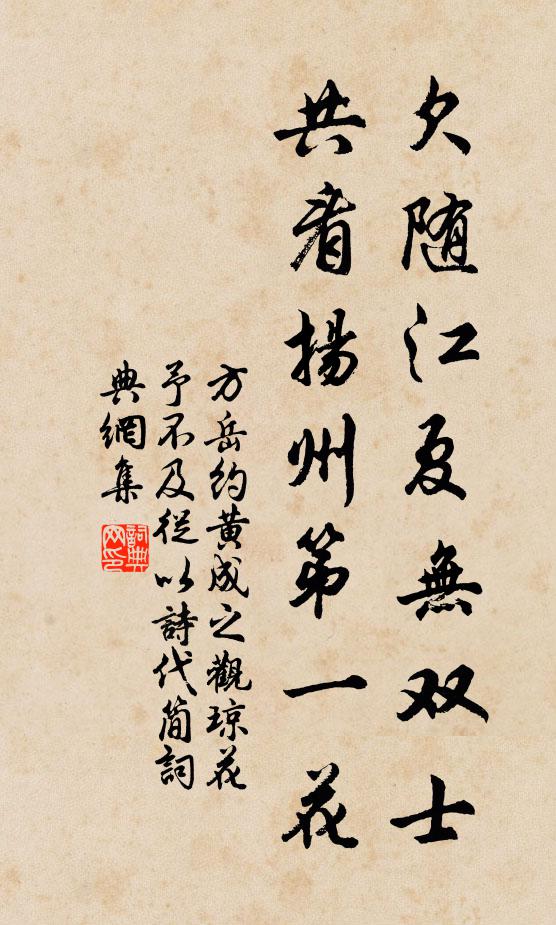 欠随江夏無双士
共看揚州第一花
方岳約黄成之觀琼花
予不及從以詩代简詞
典網集
詞典網印